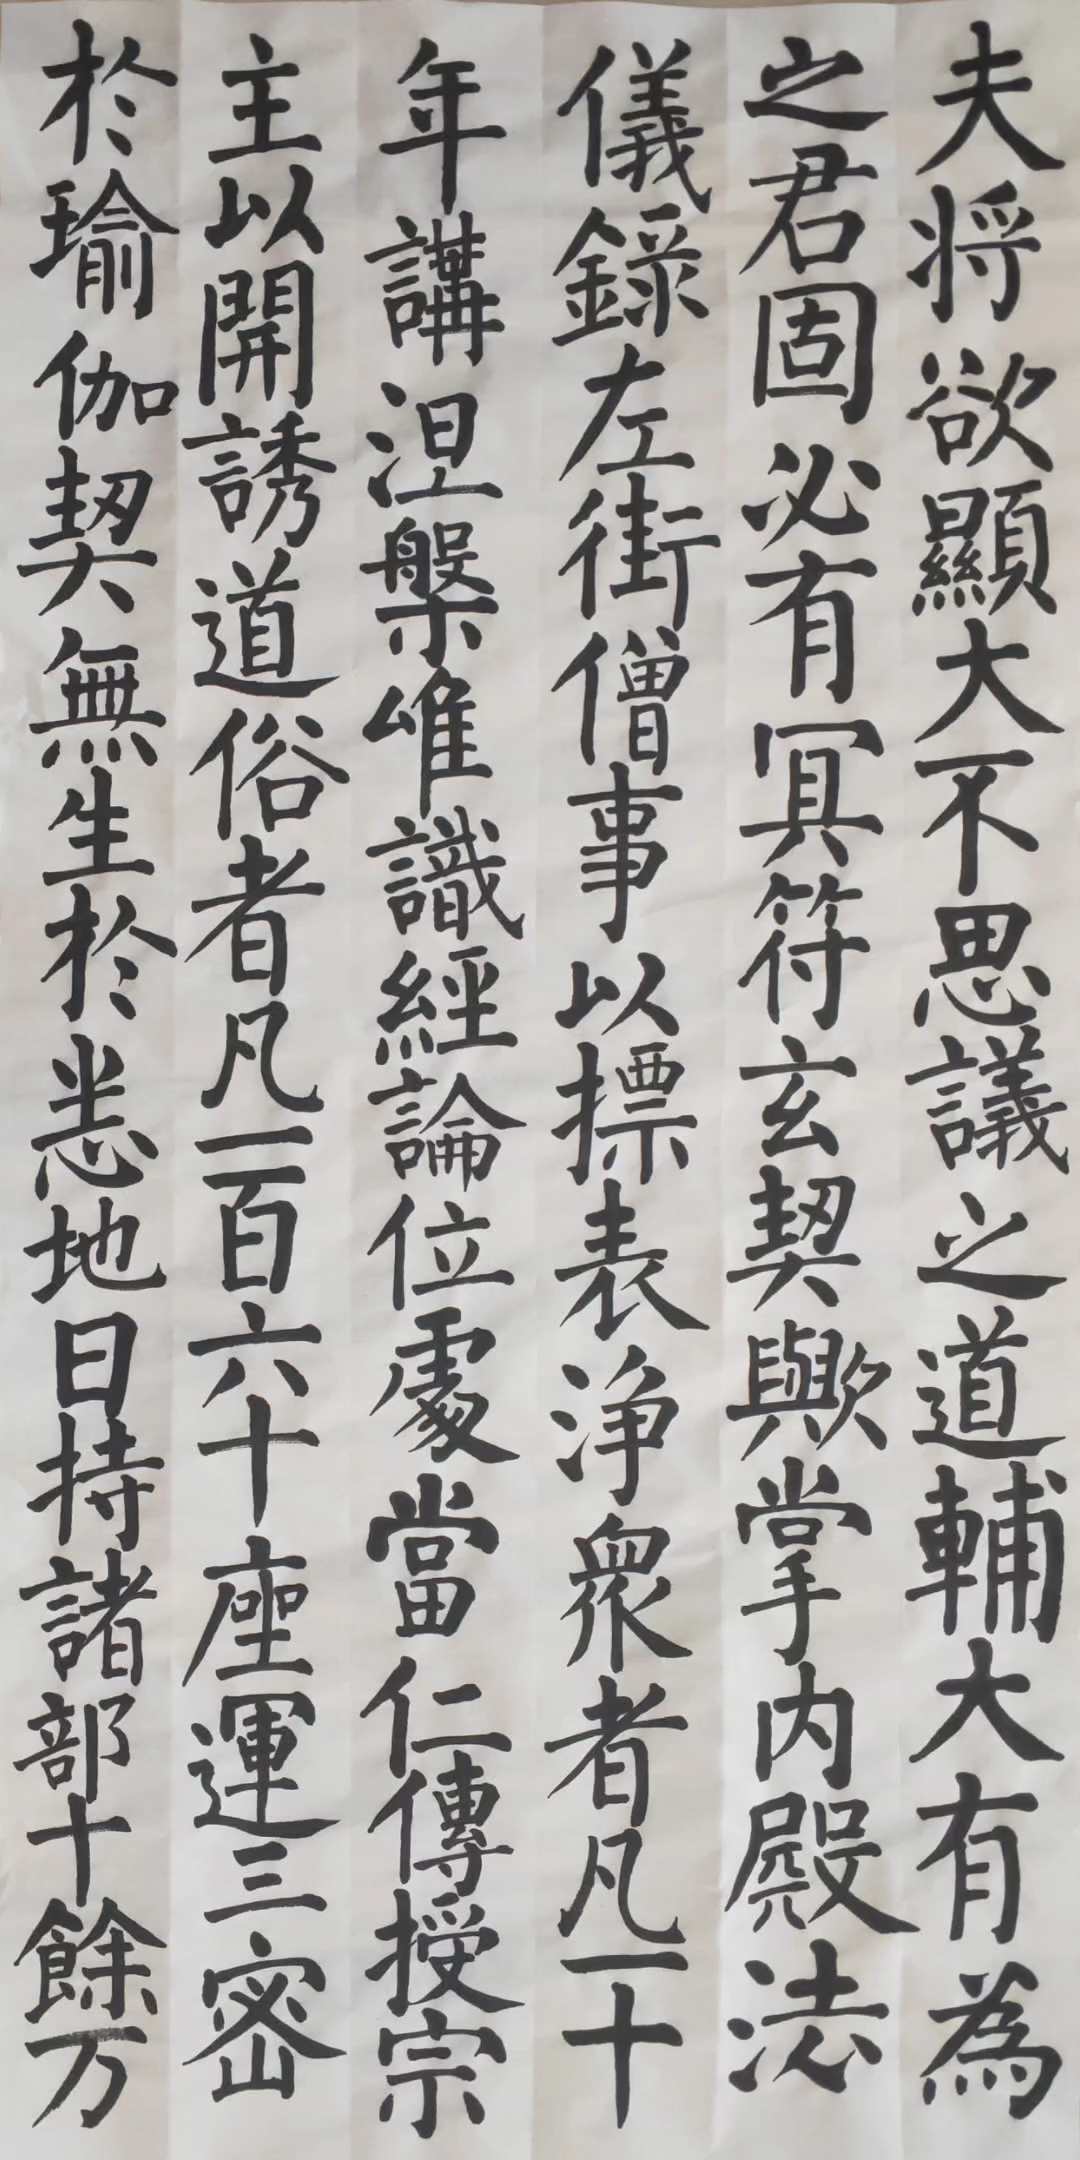 夫将欲顯大不思議之道輔大有為
之君固必有冥符玄契歟掌内殿法
儀錄左街僧事以摽表淨衆者凡一十
年講涅槃唯識經論位處當仁傳授宗
主以開誘道俗者凡一百六十座運三密
於瑜伽契無生於悉地日持諸部十餘万